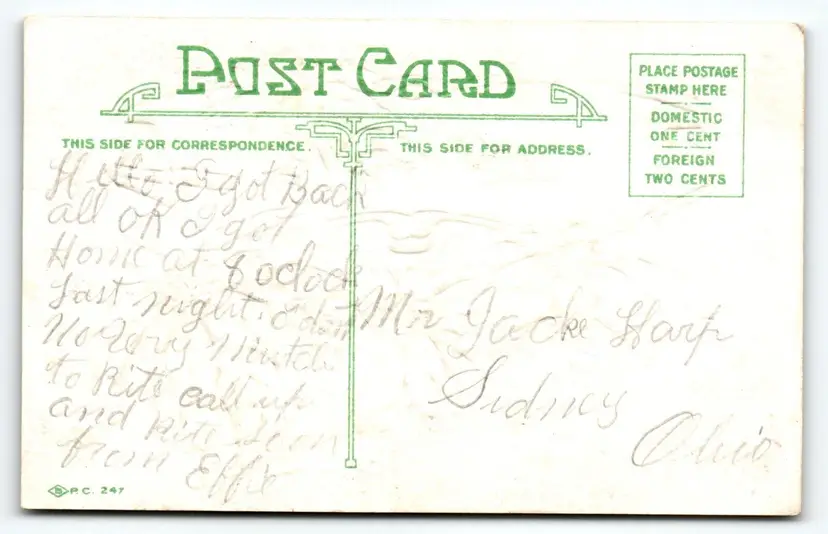 POST CARD
THIS SIDE FOR CORRESPONDENCE.
THIS SIDE FOR ADDRESS.
PLACE POSTAGE
STAMP HERE
DOMESTIC
ONE CENT
FOREIGN
TWO CENTS
Hello I got Back
all OK I got
Home at 8 oclock
Last night. I dont
very
to Rite call up
and Rite Soon
from Effie
Mr Jacke Harp
Sidney
Ohio
P.C. 247